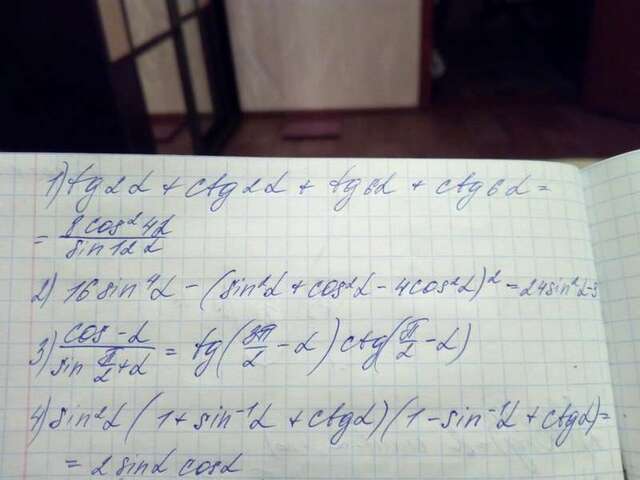 1) tg2α + ctg2α + tg6α + ctg6α =
= 8cos²4α / sin12α
2) 16sin⁴α - (sin²α + cos²α - 4cos²α)² = 24sin²α-9
3) cos-α / sin π/2+α = tg(3π/2 - α) ctg(π/2 - α)
4) sin²α (1 + sin⁻¹α + ctgα)(1 - sin⁻¹α + ctgα) =
= 2sinα cosα